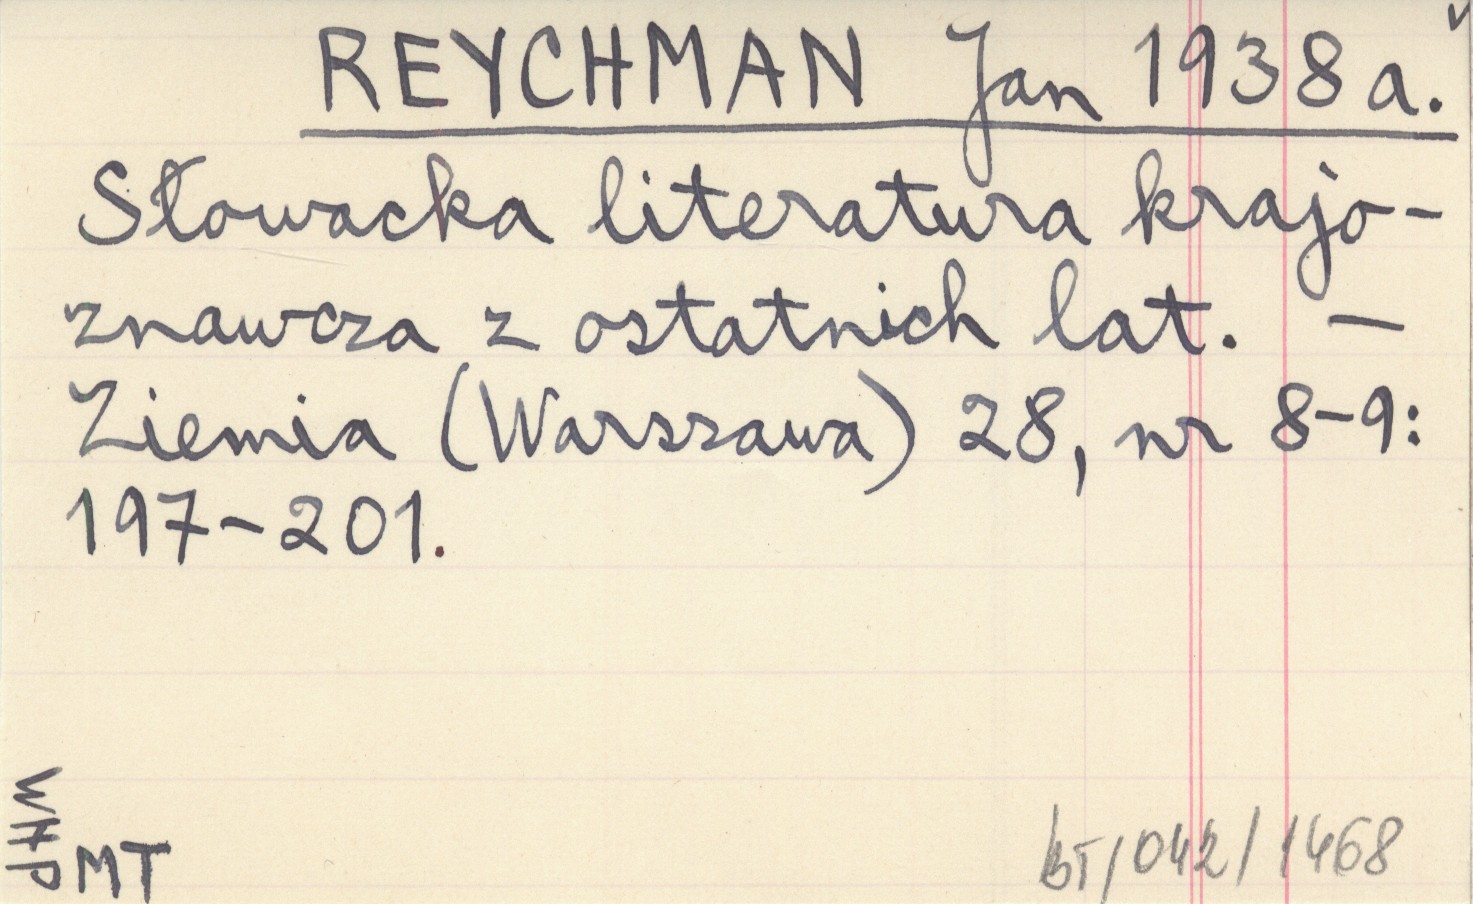 REYCHMAN Jan 1938 a.
Słowacka literatura krajo-
znawcza z ostatnich lat. —
Ziemia (Warszawa) 28, nr 8-9:
197-201.
WHP
MT
BT/042/1468